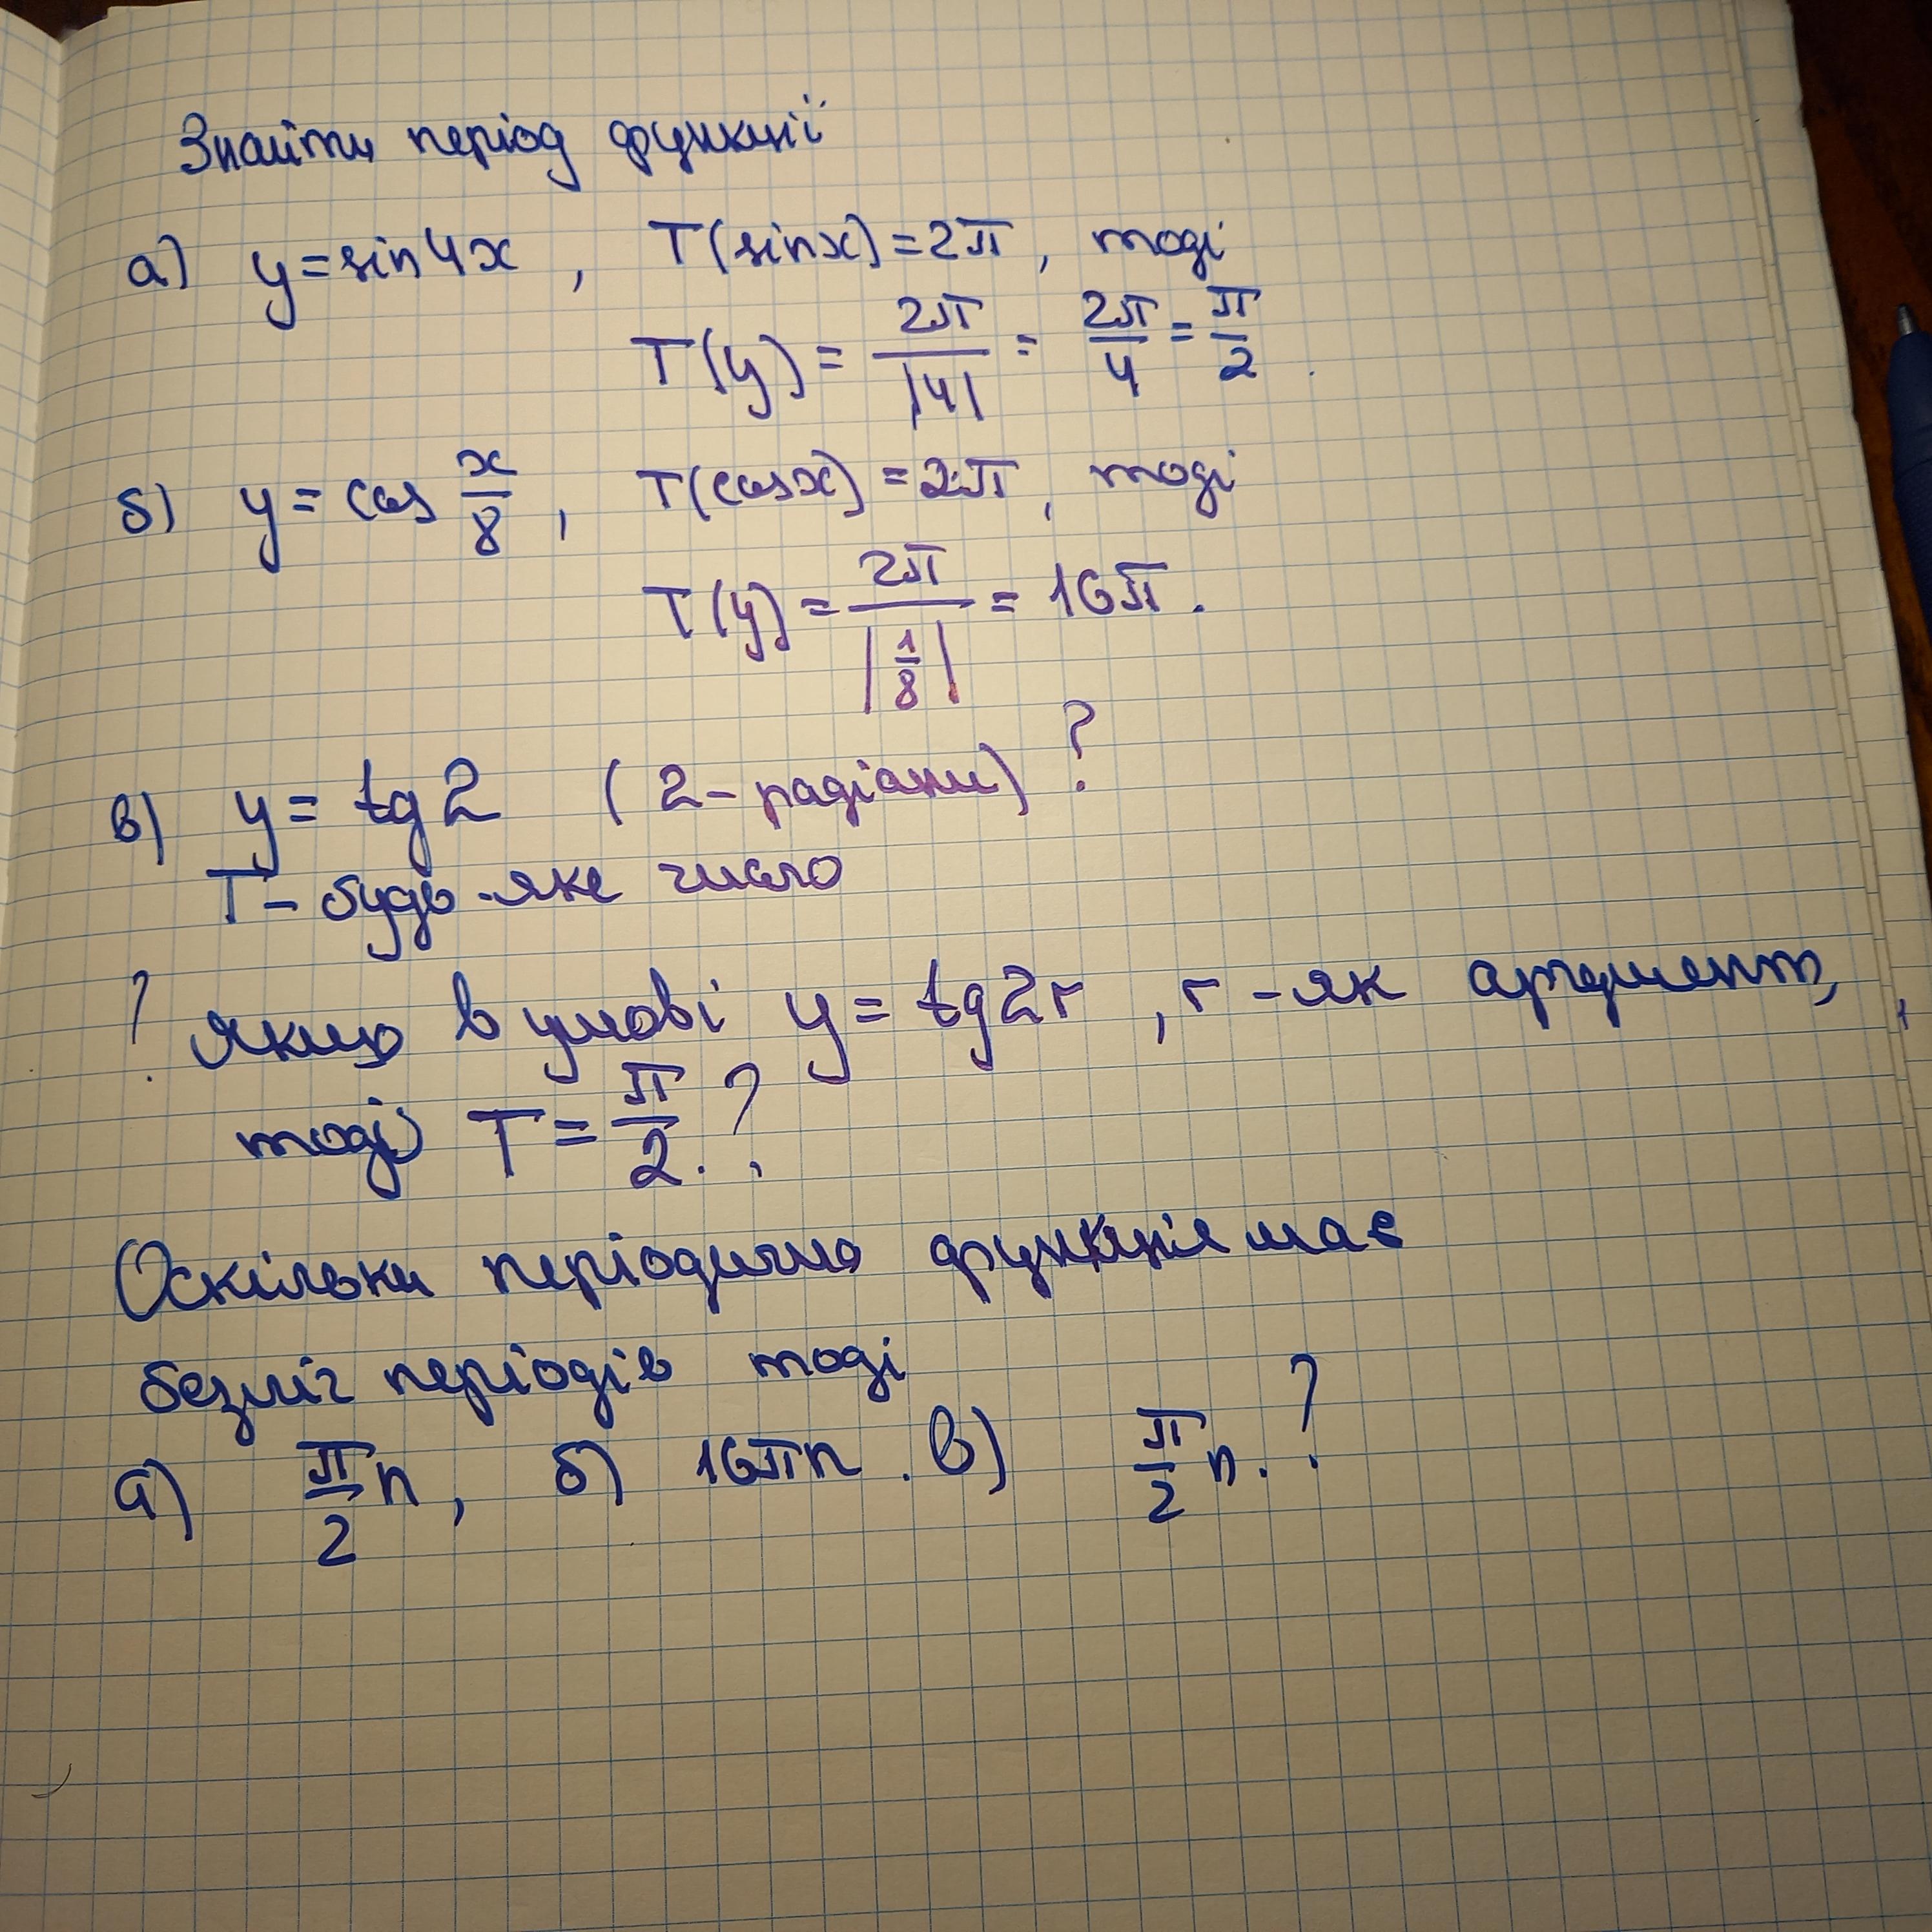 Знайти період функції
а) y = sin4x , T(sinx) = 2π , тоді
T(y) = 2π/|4| = 2π/4 = π/2 .
б) y = cos x/8 , T(cosx) = 2π , тоді
T(y) = 2π/|1/8| = 16π .
в) y = tg2 (2-радіани) ?
T - будь-яке число
? якщо в умові y = tg2r , r - як аргумент,
тоді T = π/2 . ?
Оскільки періодична функція має
безліч періодів тоді
а) π/2 n , б) 16πn . в) π/2 n . ?